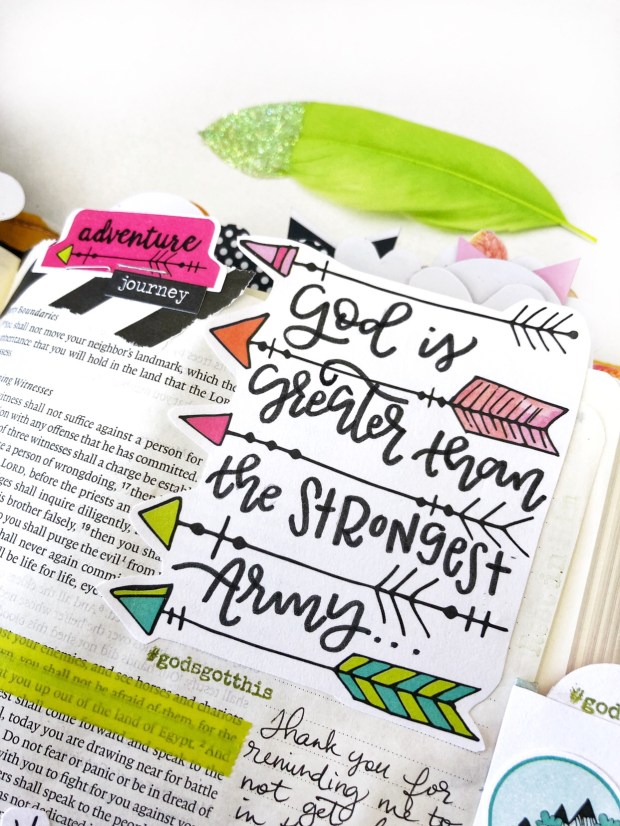 adventure
journey
Boundaries
shall not move your neighbor's landmark, which the
inheritance that you will hold in the land that the Lord
Witnesses
witness shall not suffice against a person for
with any offense that he has committed.
of three witnesses shall a charge be establ
a person of wrongdoing, 17 then
LORD, before the priests an
shall inquire diligently,
his brother falsely, 19 then you sha
you shall purge the evil from
shall never again commi
be life for life, eye
God is
Greater than
the StRongest
Army...
#godsgotthis
your enemies, and see horses and chariots
you shall not be afraid of them, for the
you up out of the land of Egypt. 2 And
shall come forward and speak to the
today you are drawing near for battle
Do not fear or panic or be in dread of
with you to fight for you against your
shall speak to the people
not dedicated
Thank you for
reminding me to
not get
in
#gods